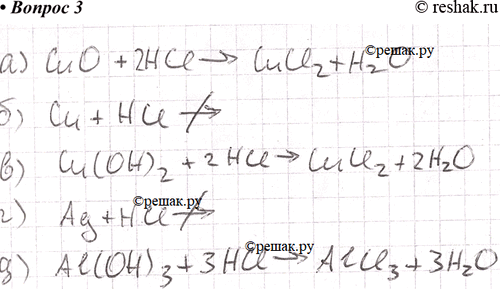 • Вопрос 3
© reshak.ru
а) CuO + 2HCl → CuCl₂ + H₂O
©решак.ру
б) Cu + HCl ↛
в) Cu(OH)₂ + 2HCl → CuCl₂ + 2H₂O
©решак.ру
г) Ag + HCl ↛
©решак.ру
д) Al(OH)₃ + 3HCl → AlCl₃ + 3H₂O